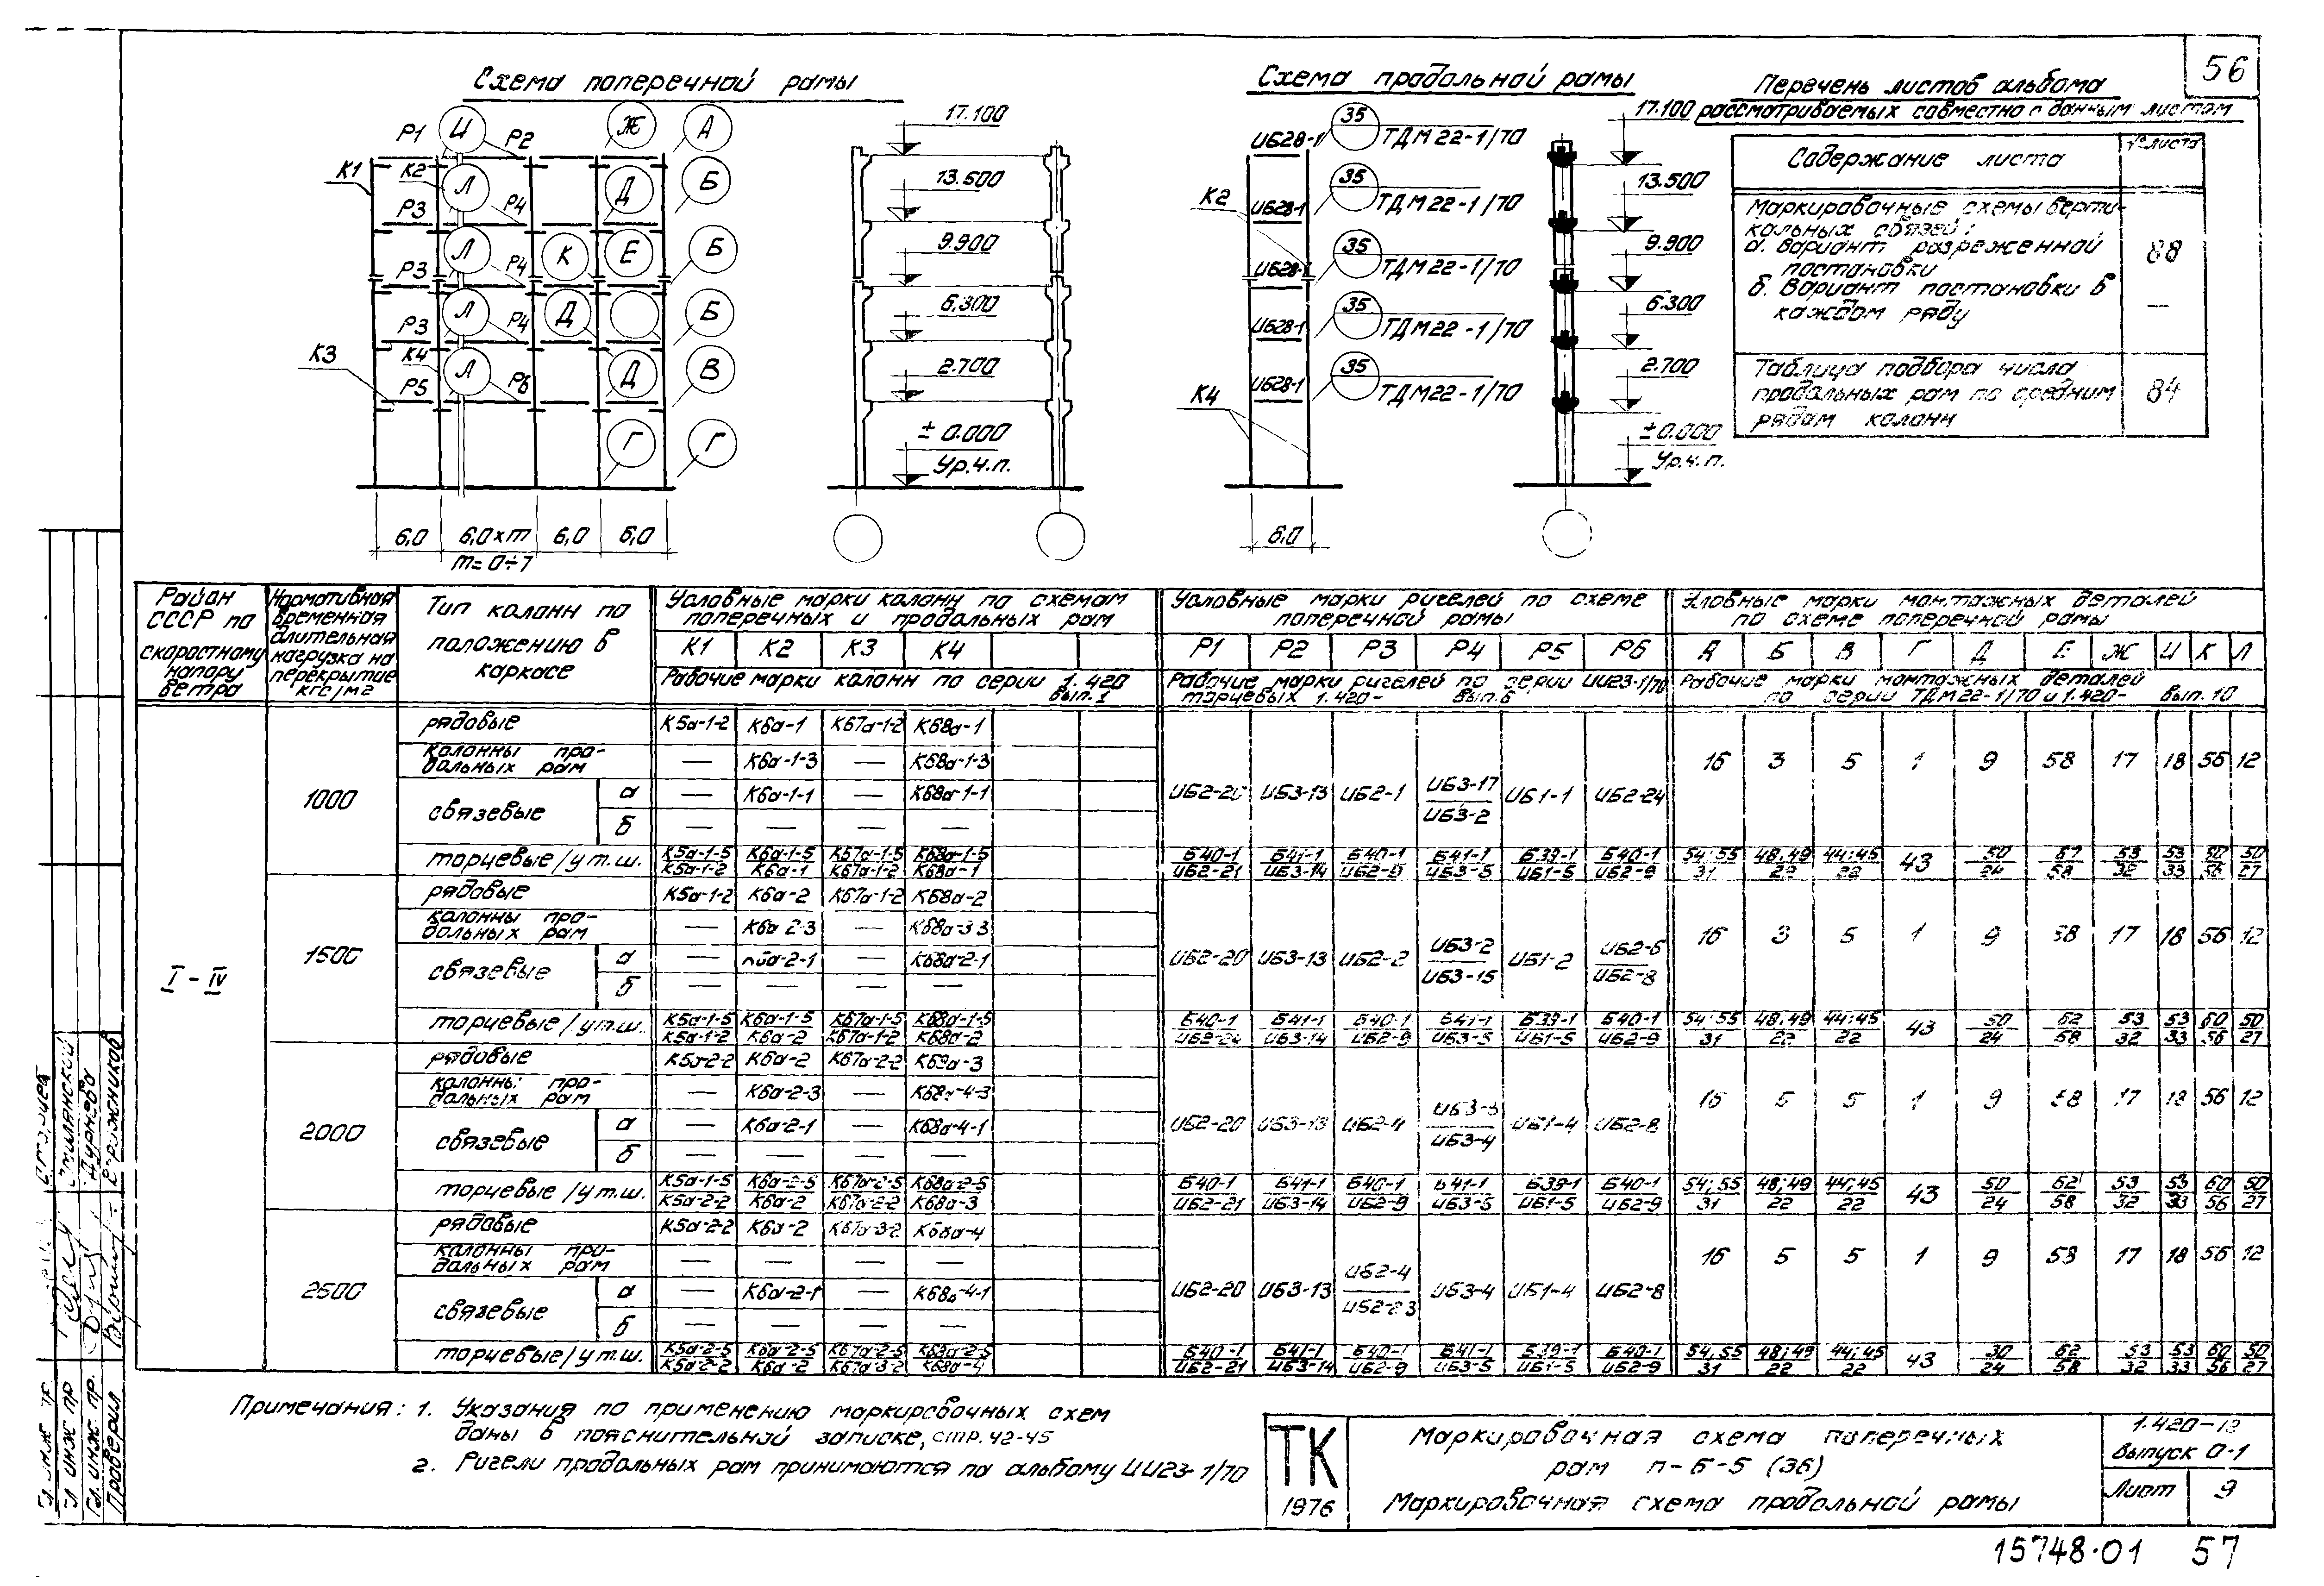 56
Схема поперечной рамы
Р1 И Р2 Ж А
К1 К2 Л Д Б
Р3 Р4
Л К Е Б
Р3 Р4
Л Д Б
Р3 Р4
К3 К4 Л Д В
Р5 Р6
Г Г
6,0 6,0×m 6,0 6,0
m=0÷7
17.100
13.500
9.900
6.300
2.700
± 0.000
Ур.ч.п.
Схема продольной рамы
ИБ28-1 35 ТДМ22-1/70
К2 ИБ28-1 35 ТДМ22-1/70
ИБ28-1 35 ТДМ22-1/70
ИБ28-1 35 ТДМ22-1/70
К4 ИБ28-1 35 ТДМ22-1/70
6,0
17.100
13.500
9.900
6.300
2.700
±0.000
Ур.ч.п.
Перечень листов альбома
рассматриваемых совместно с данным листом
Содержание листа № листа
Маркировочные схемы верти-
кальных связей:
а. Вариант разреженной
постановки 88
б. Вариант постановки в
каждом ряду —
Таблица подбора числа
продольных рам по средним
рядам колонн 84
Район СССР по скоростному напору ветра
Нормативная временная длительная нагрузка на перекрытие кгс/м2
Тип колонн по положению в каркасе
Условные марки колонн по схемам поперечных и продольных рам
К1 К2 К3 К4
Рабочие марки колонн по серии 1.420 вып.1
Условные марки ригелей по схеме поперечной рамы
Р1 Р2 Р3 Р4 Р5 Р6
Рабочие марки ригелей по серии ИИ23-1/70 торцевых 1.420- вып.6
Условные марки монтажных деталей по схеме поперечной рамы
А Б В Г Д Е Ж И К Л
Рабочие марки монтажных деталей по серии ТДМ22-1/70 и 1.420- вып.10
I-IV
1000
рядовые К5а-1-2 К6а-1 К67а-1-2 К68а-1
колонны про-
дольных рам — К6а-1-3 — К68а-1-3
связевые а — К6а-1-1 — К68а-1-1
б — — — —
ИБ2-20 ИБ3-13 ИБ2-1 ИБ3-17/ИБ3-2 ИБ1-1 ИБ2-24
16 3 5 1 9 58 17 18 56 12
торцевые/у т.ш. К5а-1-5/К5а-1-2 К6а-1-5/К6а-1 К67а-1-5/К67а-1-2 К68а-1-5/К68а-1
Б40-1/ИБ2-21 Б41-1/ИБ3-14 Б40-1/ИБ2-9 Б41-1/ИБ3-5 Б39-1/ИБ1-5 Б40-1/ИБ2-9
54;55/31 48;49/22 44;45/22 43 50/24 62/58 53/32 53/33 60/56 50/27
1500
рядовые К5а-1-2 К6а-2 К67а-1-2 К68а-2
колонны про-
дольных рам — К6а-2-3 — К68а-3-3
связевые а — К6а-2-1 — К68а-2-1
б — — — —
ИБ2-20 ИБ3-13 ИБ2-2 ИБ3-2/ИБ3-15 ИБ1-2 ИБ2-6/ИБ2-8
16 3 5 1 9 58 17 18 56 12
торцевые/у т.ш. К5а-1-5/К5а-1-2 К6а-1-5/К6а-2 К67а-1-5/К67а-1-2 К68а-1-5/К68а-2
Б40-1/ИБ2-21 Б41-1/ИБ3-14 Б40-1/ИБ2-9 Б41-1/ИБ3-5 Б39-1/ИБ1-5 Б40-1/ИБ2-9
54;55/31 48;49/22 44;45/22 43 50/24 62/58 53/32 53/33 60/56 50/27
2000
рядовые К5а-2-2 К6а-2 К67а-2-2 К68а-3
колонны про-
дольных рам — К6а-2-3 — К68а-4-3
связевые а — К6а-2-1 — К68а-4-1
б — — — —
ИБ2-20 ИБ3-13 ИБ2-4 ИБ3-3/ИБ3-4 ИБ1-4 ИБ2-8
16 5 5 1 9 58 17 18 56 12
торцевые/у т.ш. К5а-1-5/К5а-2-2 К6а-2-5/К6а-2 К67а-2-5/К67а-2-2 К68а-2-5/К68а-3
Б40-1/ИБ2-21 Б41-1/ИБ3-14 Б40-1/ИБ2-9 Б41-1/ИБ3-5 Б39-1/ИБ1-5 Б40-1/ИБ2-9
54;55/31 48;49/22 44;45/22 43 50/24 62/58 53/32 53/33 60/56 50/27
2500
рядовые К5а-2-2 К6а-2 К67а-3-2 К68а-4
колонны про-
дольных рам — — — —
связевые а — К6а-2-1 — К68а-4-1
б — — — —
ИБ2-20 ИБ3-13 ИБ2-4/ИБ2-23 ИБ3-4 ИБ1-4 ИБ2-8
16 5 5 1 9 58 17 18 56 12
торцевые/у т.ш. К5а-2-5/К5а-2-2 К6а-2-5/К6а-2 К67а-2-5/К67а-3-2 К68а-2-5/К68а-4
Б40-1/ИБ2-21 Б41-1/ИБ3-14 Б40-1/ИБ2-9 Б41-1/ИБ3-5 Б39-1/ИБ1-5 Б40-1/ИБ2-9
54;55/31 48;49/22 44;45/22 43 30/24 62/58 53/32 53/33 60/56 50/27
Примечания: 1. Указания по применению маркировочных схем
даны в пояснительной записке, стр. 42-45
2. Ригели продольных рам принимаются по альбому ИИ23-1/70
ТК
1976
Маркировочная схема поперечных
рам п-6-5 (36)
Маркировочная схема продольной рамы
1.420-12
Выпуск 0-1
Лист 9
15748-01 57
Гл. инж. пр.
Проверил